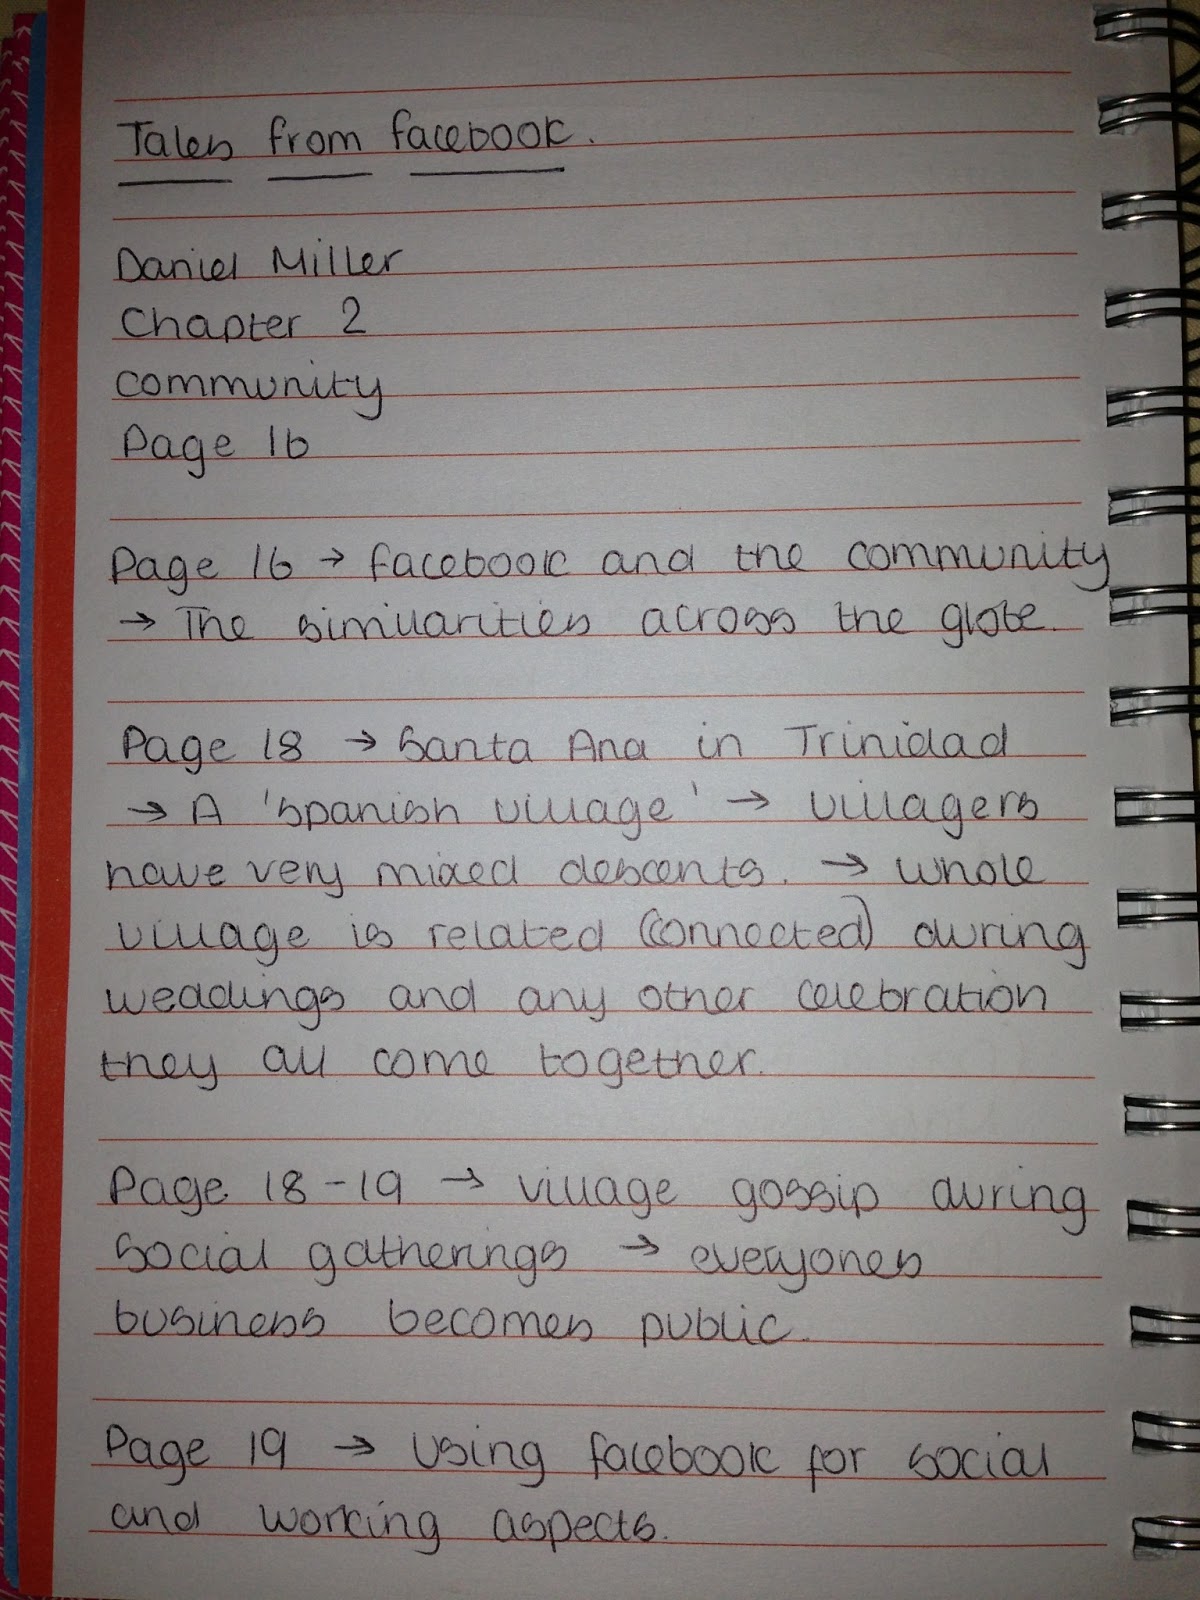 Tales from facebook.
Daniel Miller
Chapter 2
community
Page 16
Page 16 → facebook and the community
→ The similarities across the globe.
Page 18 → Santa Ana in Trinidad
→ A 'spanish village' → villagers
have very mixed descents. → whole
village is related (connected) during
weddings and any other celebration
they all come together.
Page 18-19 → village gossip during
social gatherings → everyones
business becomes public.
Page 19 → Using facebook for social
and working aspects.